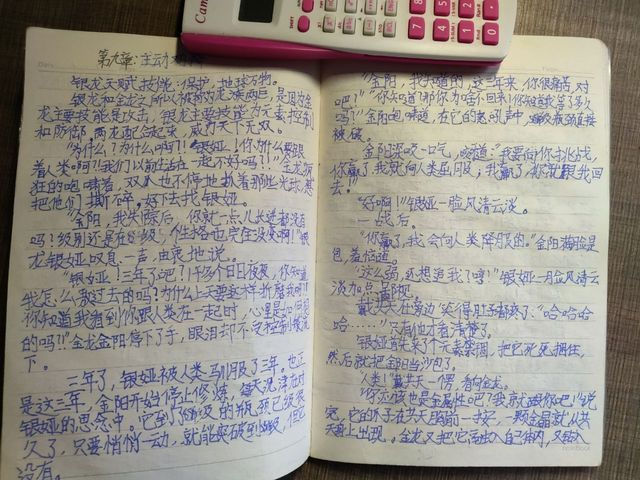 第九章:主动
银龙天赋技能:保护,地球万物。
银龙和金龙之所以被称为龙族两巨,是因为金
龙主要技能是攻击,银龙主要技能为元素控制
和防御,两龙配合起来,威力天下无双。
"为什么?为什么啊?!银娅!你为什么要跟
着人类啊?!我们以前生活在一起不好吗?!"金龙疯
狂的咆哮着,双爪也不停地抓着那些光球,想
把他们撕碎,好下去找银娅。
"金阳,我失踪后,你就一点儿长进都没有
吗?级别还是在 级,个性格也完全没变啊!"银
龙银娅叹息一声,由衷地说。
"银娅!三年了吧?!1千多个日日夜夜,你知道
我怎么熬过去的吗?为什么上天要这样折磨我啊?!
你知道我看到你跟人类在一起时,心里是如何想
的吗?!"金龙金阳停下了手,眼泪却不受控制地流
下。
三年了,银娅被人类驯服了三年。也正
是这三年,金阳开始停止修炼,每天沉浸在对
银娅的思念中。它到了 级的瓶颈已经很
久了,只要悄悄一动,就能突破到 级,但它
没有。
"金阳,我知道的,这三年来,你很痛苦,对
吧?""你知道!那你为啥不回来!你知道我等了多久
吗?!"金阳咆哮道,在它的怒吼声中, 级瓶颈直接
被破。
金阳深吸一口气,喊道:"我要向你挑战,
你赢了,我就向人类屈服,我赢了,你就跟我回
去!"
"好啊!"银娅一脸风清云淡。
一战后。
"你赢了,我会向人类降服的。"金阳满脸是
包,羞恼道。
"这么弱,还想追我?哼!"银娅一脸风清云
淡加点鄙视。
戴 天在旁边笑得肚子都疼了:"哈哈哈
哈……"只有他才看清楚了,
银娅首先来个元素禁锢,把它死死捆住,
然后就把金阳当沙包了。
"人类!"戴 天一愣,看向金龙。
"你应该也是金属性吧?我就跟你吧!"说
完,它的爪子在 天胸前一按,一颗金晶就从
天身上出现,金龙又把它 入自己体内,又 入